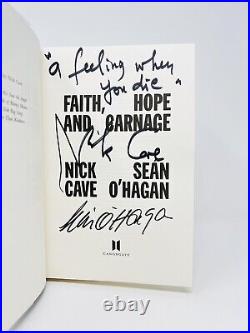 "a feeling when
you die"
FAITH, HOPE
AND CARNAGE
Nick Cave
NICK SEAN
CAVE O'HAGAN
Seán O'Hagan
CANONGATE